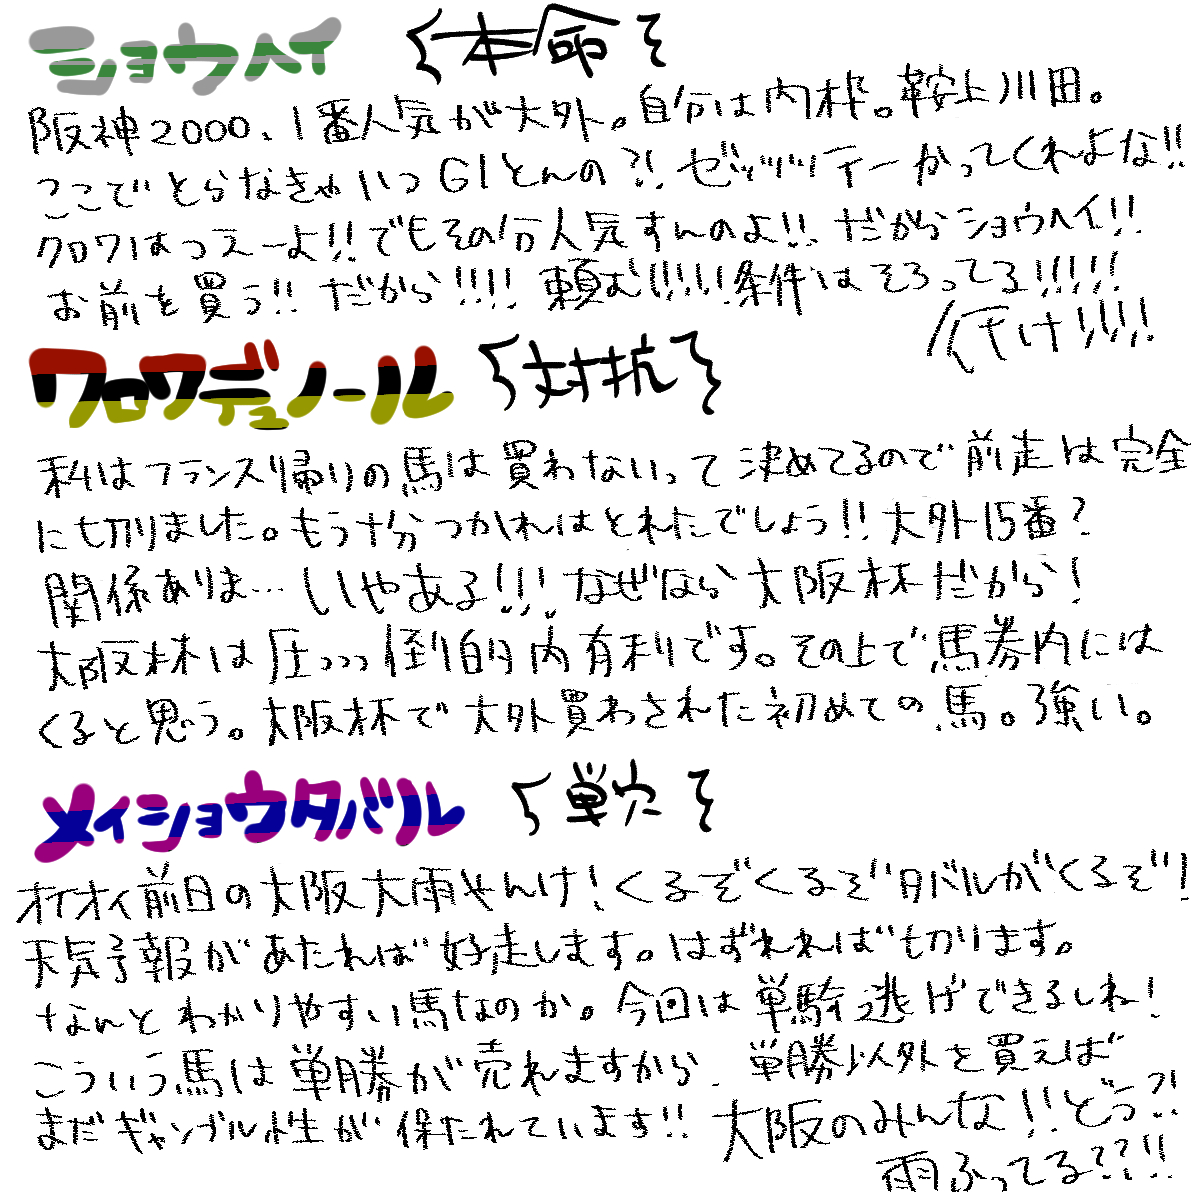 ショウヘイ {本命}
阪神2000、1番人気が大外。自分は内枠。鞍上川田。
ここでとらなきゃいつG1とんの?!ゼッツティーかってくれよな!!
クロワはつえーよ!!でもその分人気すんのよ!!だからショウヘイ!!
お前を買う!!だから!!!!頼む!!!!!条件はそろってる!!!!!
行け!!!!
クロワデュノール {対抗}
私はフランス帰りの馬は買わないって決めてるので前走は完全
に切りました。もう十分つかれはとれたでしょう!!大外15番?
関係ありま…しいやある!!!なぜなら大阪杯だから!
大阪杯は圧っっっ倒的内有利です。その上で馬券内には
くると思う。大阪杯で大外買わされた初めての馬。強い。
メイショウタバル {単穴}
オイオイ前日の大阪大雨やんけ!くるぞくるぞタバルがくるぞ!
天気予報があたれば好走します。はずれれば切ります。
なんとわかりやすい馬なのか。今回は単騎逃げできるしね!
こういう馬は単勝が売れますから、単勝以外を買えば
まだギャンブル性が保たれています!!大阪のみんな!!どう?!
雨ふってる??!!